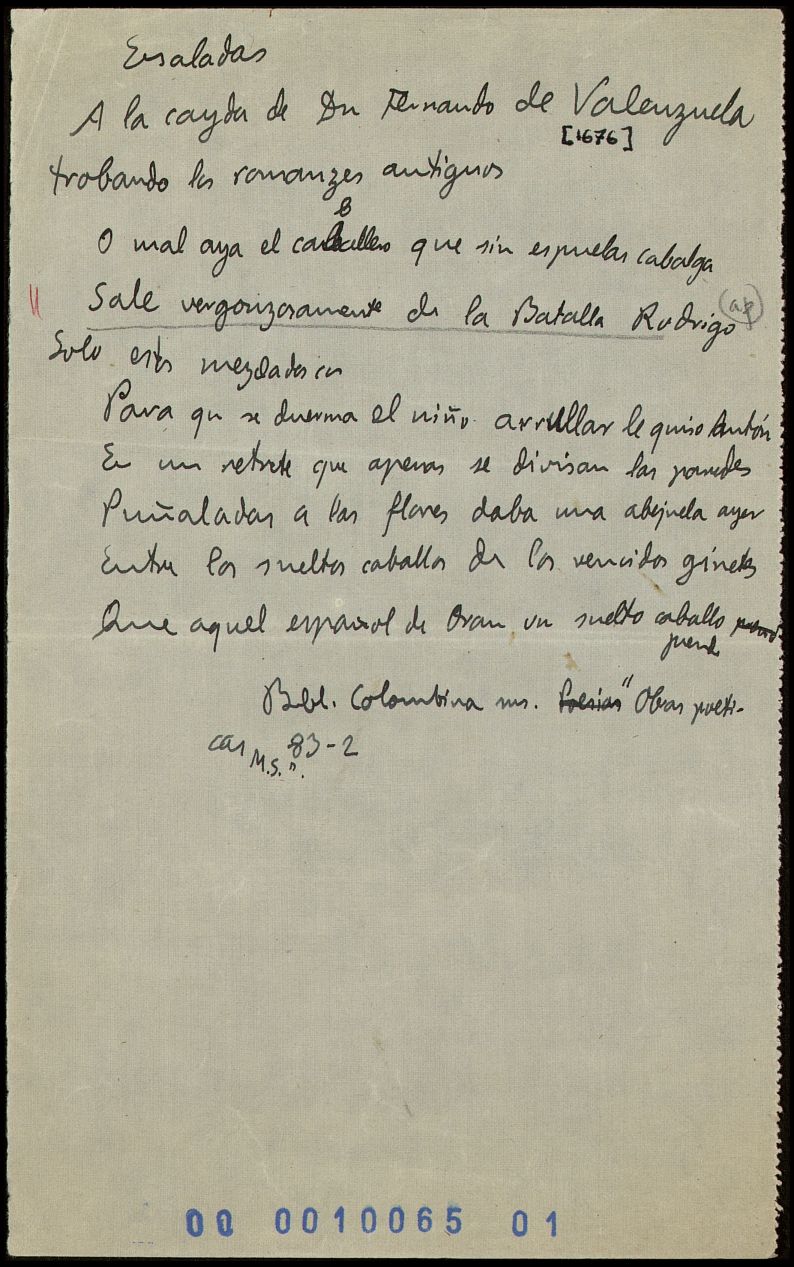 Ensaladas
A la cayda de Dn Fernando de Valenzuela
[1676]
trobando los romanzes antiguos
O mal aya el caballero que sin espuelas cabalga
Sale vergonzosamente de la Batalla Rodrigo (ap)
Solo estos mezclados con
Para qu se duerma el niño arrullar le quiso Antón
En un retrete que apenas se divisan las paredes
Puñaladas a las flores daba una abejuela ayer
Entre los sueltos caballos de los vencidos ginetes
Que aquel español de Oran un suelto caballo prend
prende
Bibl. Colombina ms. Poesias "Obras poeti-
cas M.S." 83-2
00 0010065 01